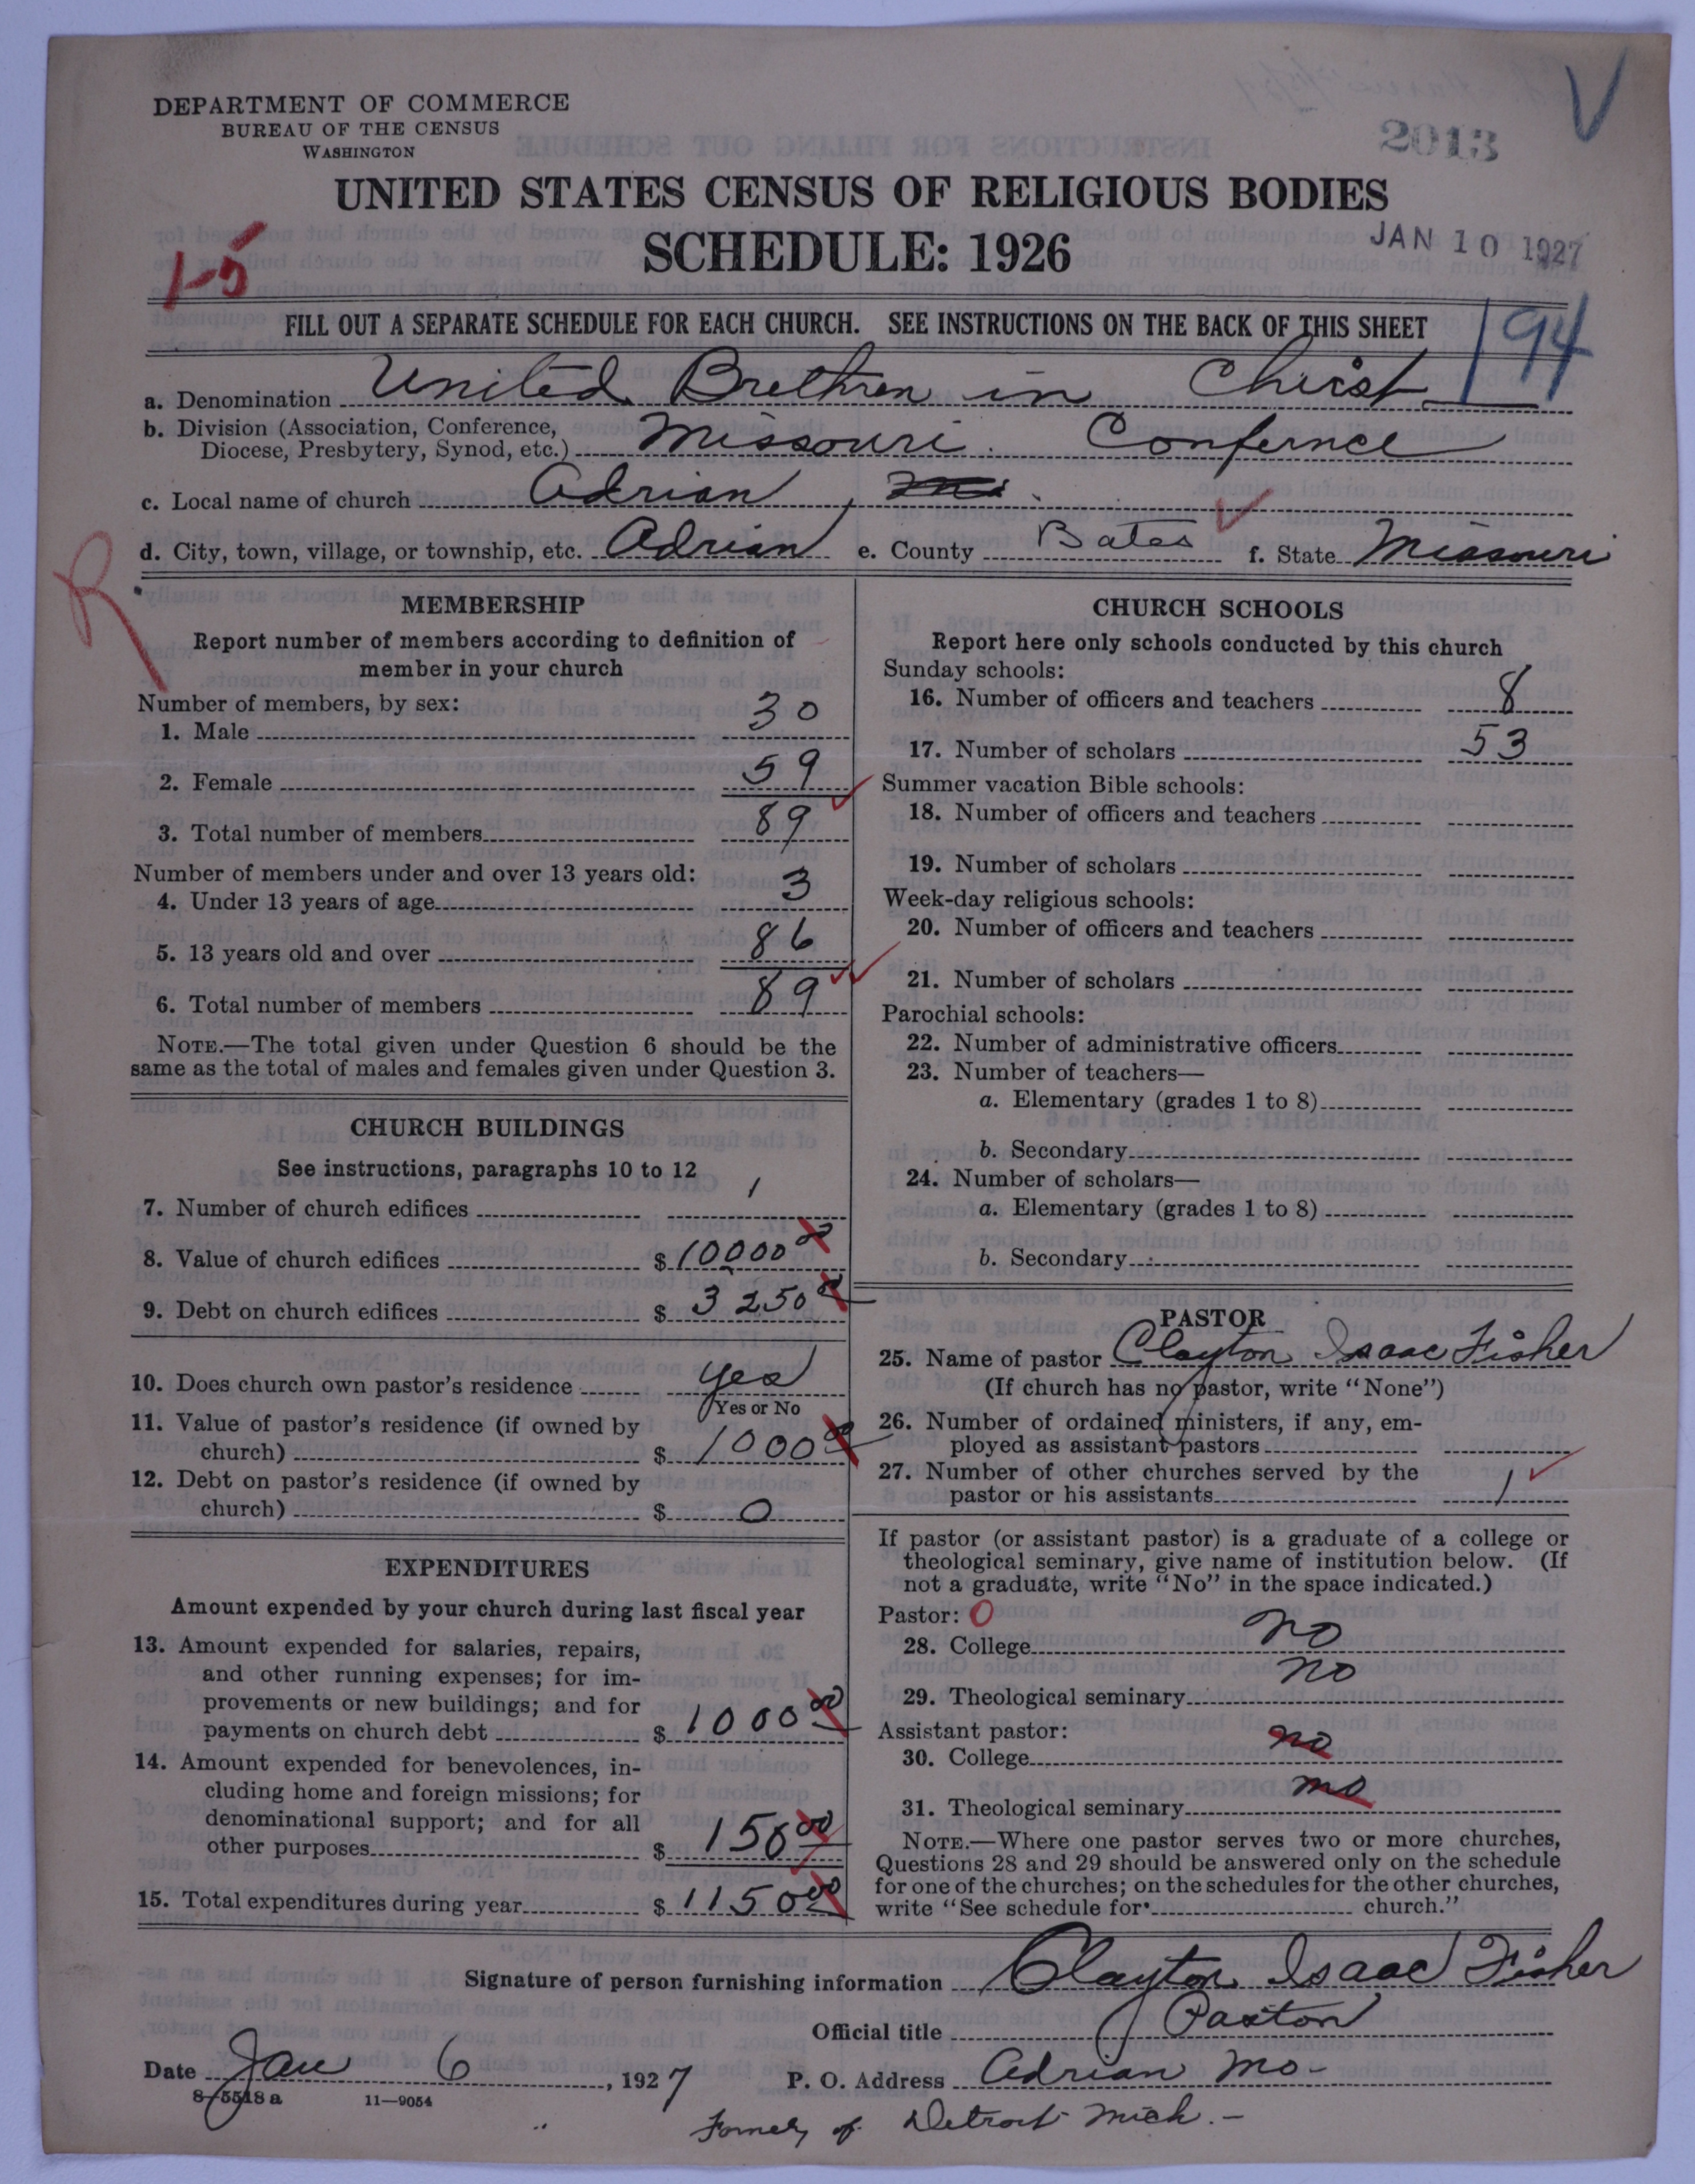 DEPARTMENT OF COMMERCE
BUREAU OF THE CENSUS
WASHINGTON
2013
V
UNITED STATES CENSUS OF RELIGIOUS BODIES
SCHEDULE: 1926
JAN 10 1927
1-5
FILL OUT A SEPARATE SCHEDULE FOR EACH CHURCH. SEE INSTRUCTIONS ON THE BACK OF THIS SHEET
194
a. Denomination United Brethren in Christ
b. Division (Association, Conference,
Diocese, Presbytery, Synod, etc.) Missouri Confernce
c. Local name of church Adrian,
d. City, town, village, or township, etc. Adrian e. County Bates f. State Missouri
R
MEMBERSHIP
Report number of members according to definition of
member in your church
Number of members, by sex:
1. Male 30
2. Female 59
3. Total number of members 89
Number of members under and over 13 years old:
4. Under 13 years of age 3
5. 13 years old and over 86
6. Total number of members 89
NOTE.—The total given under Question 6 should be the
same as the total of males and females given under Question 3.
CHURCH BUILDINGS
See instructions, paragraphs 10 to 12
7. Number of church edifices 1
8. Value of church edifices $ 10000 00
9. Debt on church edifices $ 3250 00
10. Does church own pastor's residence yes
Yes or No
11. Value of pastor's residence (if owned by
church) $ 1000 00
12. Debt on pastor's residence (if owned by
church) $ 0
EXPENDITURES
Amount expended by your church during last fiscal year
13. Amount expended for salaries, repairs,
and other running expenses; for im-
provements or new buildings; and for
payments on church debt $ 1000 00
14. Amount expended for benevolences, in-
cluding home and foreign missions; for
denominational support; and for all
other purposes $ 150 00
15. Total expenditures during year $ 1150 00
CHURCH SCHOOLS
Report here only schools conducted by this church
Sunday schools:
16. Number of officers and teachers 8
17. Number of scholars 53
Summer vacation Bible schools:
18. Number of officers and teachers
19. Number of scholars
Week-day religious schools:
20. Number of officers and teachers
21. Number of scholars
Parochial schools:
22. Number of administrative officers
23. Number of teachers—
a. Elementary (grades 1 to 8)
b. Secondary
24. Number of scholars—
a. Elementary (grades 1 to 8)
b. Secondary
PASTOR
25. Name of pastor Clayton Isaac Fisher
(If church has no pastor, write "None")
26. Number of ordained ministers, if any, em-
ployed as assistant pastors
27. Number of other churches served by the
pastor or his assistants 1
If pastor (or assistant pastor) is a graduate of a college or
theological seminary, give name of institution below. (If
not a graduate, write "No" in the space indicated.)
Pastor: 0
28. College no
29. Theological seminary no
Assistant pastor:
30. College no
31. Theological seminary no
NOTE.—Where one pastor serves two or more churches,
Questions 28 and 29 should be answered only on the schedule
for one of the churches; on the schedules for the other churches,
write "See schedule for church."
Signature of person furnishing information Clayton Isaac Fisher
Official title Pastor
Date Jan 6, 1927 P. O. Address Adrian Mo-
8-5518 a 11-9054
Formely of Detroit Mich. -